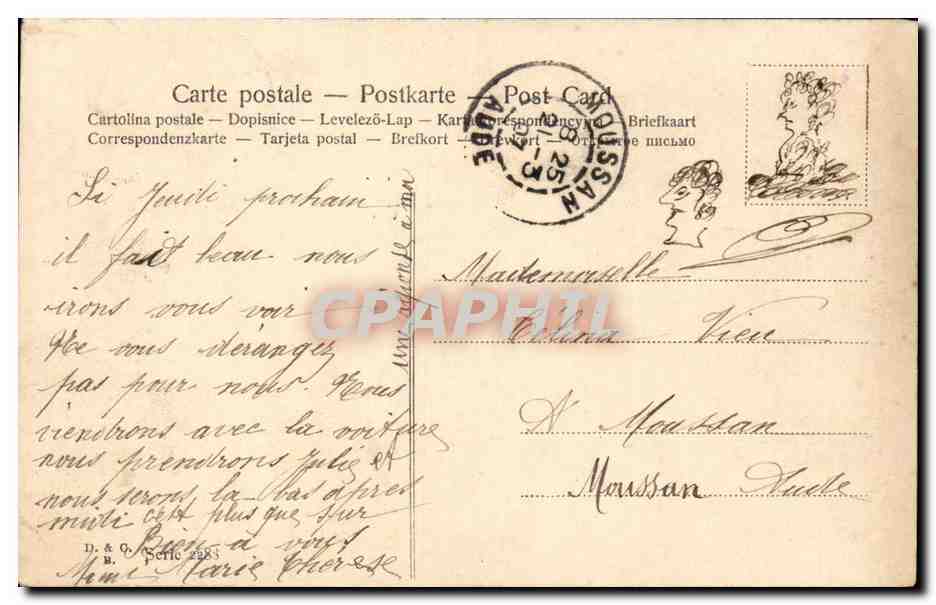 Carte postale — Postkarte — Post Card
Cartolina postale – Dopisnice – Levelező-Lap – Karta korespondencyjna – Briefkaart
Correspondenzkarte – Tarjeta postal – Brefkort – Brevkort – Открытое письмо
MOUSSAN
AUDE
8 25
21 -3
Si Jeudi prochain
il fait beau nous
irons vous voir
Ne vous dérangez
pas pour nous. Nous
viendrons avec la voiture
nous prendrons Julie et
nous serons la-bas apres
midi cest plus que sur
Bien a vous
Mimi Marie Therese
une à ma
Mademoiselle
Célina Vieu
A Moussan
Moussan Aude
D. & C.
B.
Serie 2283
CPAPHIL